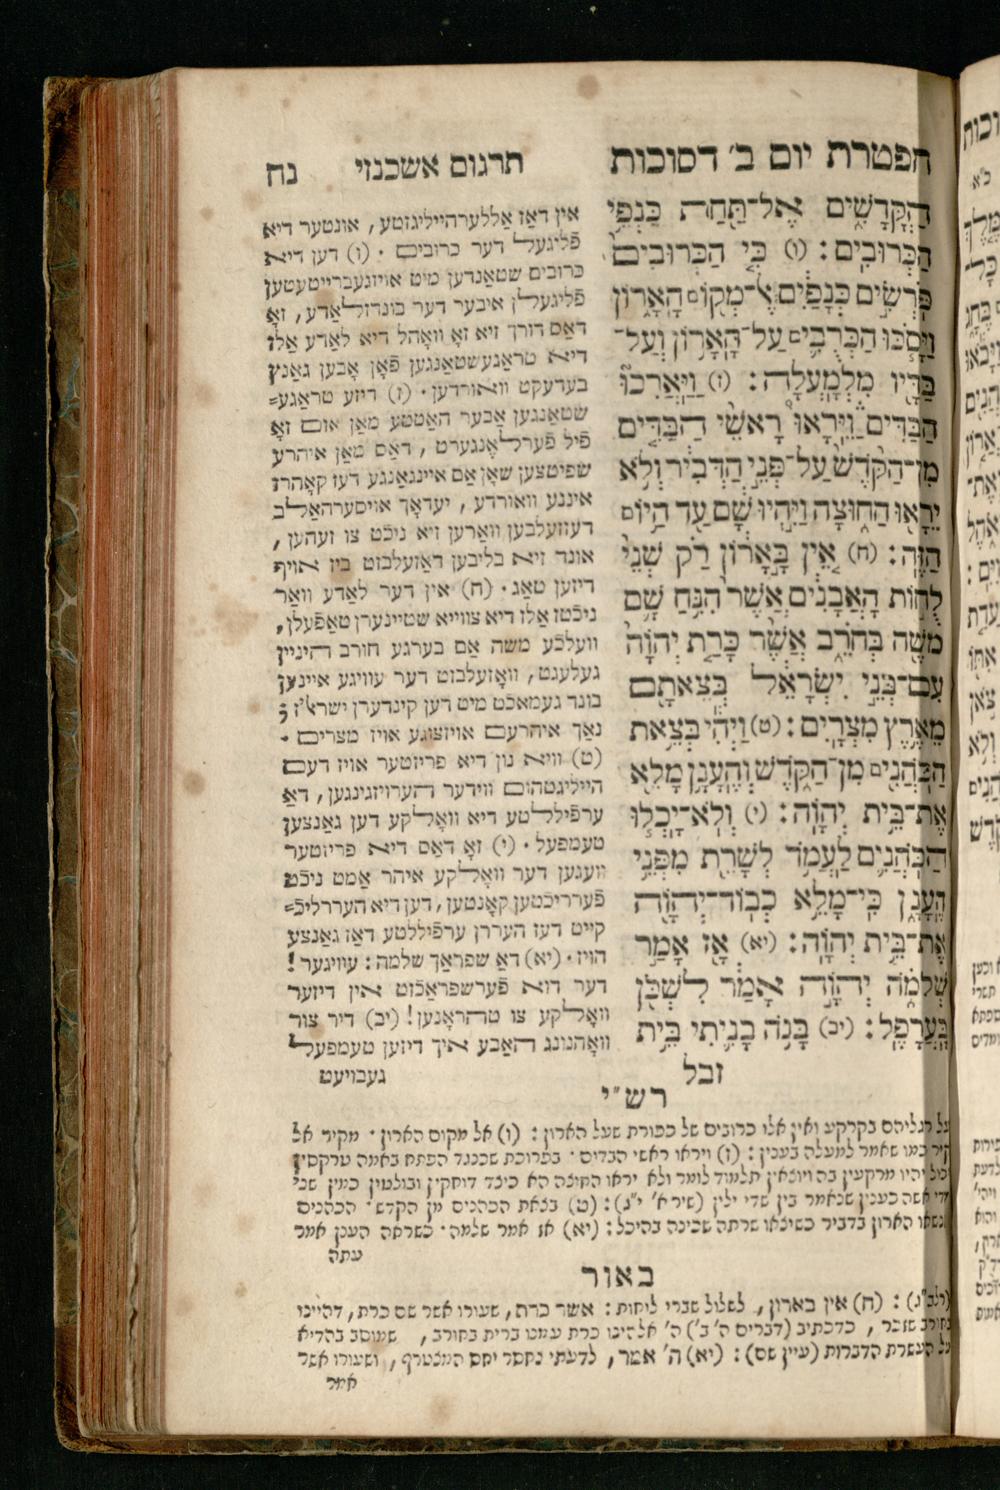 הפטרת יום ב׳ דסוכות
תרגום אשכנזי
נח
הַקֳּדָשִׁים אֶל־תַּחַת כַּנְפֵי
הַכְּרוּבִים: (ו) כִּי הַכְּרוּבִים
פֹּרְשִׂים כְּנָפַיִם אֶל־מְקוֹם הָאָרוֹן
וַיָּסֹכּוּ הַכְּרֻבִים עַל־הָאָרוֹן וְעַל־
בַּדָּיו מִלְמָעְלָה: (ז) וַיַּאֲרִכוּ
הַבַּדִּים וַיֵּרָאוּ רָאשֵׁי הַבַּדִּים
מִן־הַקֹּדֶשׁ עַל־פְּנֵי הַדְּבִיר וְלֹא
יֵרָאוּ הַחוּצָה וַיִּהְיוּ שָׁם עַד הַיּוֹם
הַזֶּה: (ח) אֵין בָּאָרוֹן רַק שְׁנֵי
לֻחוֹת הָאֲבָנִים אֲשֶׁר הִנִּחַ שָׁם
מֹשֶׁה בְּחֹרֵב אֲשֶׁר כָּרַת יְהוָֹה
עִם־בְּנֵי יִשְׂרָאֵל בְּצֵאתָם
מֵאֶרֶץ מִצְרָיִם: (ט) וַיְהִי בְּצֵאת
הַכֹּהֲנִים מִן־הַקֹּדֶשׁ וְהֶעָנָן מָלֵא
אֶת־בֵּית יְהוָֹה: (י) וְלֹא־יָכְלוּ
הַכֹּהֲנִים לַעֲמֹד לְשָׁרֵת מִפְּנֵי
הֶעָנָן כִּי־מָלֵא כְבוֹד־יְהוָֹה
אֶת־בֵּית יְהוָֹה: (יא) אָז אָמַר
שְׁלֹמֹה יְהוָֹה אָמַר לִשְׁכֹּן
בָּעֲרָפֶל: (יב) בָּנֹה בָנִיתִי בֵּית
זבל
אין דאז אללערהייליגזטע, אונטער דיא
פֿליגעל דער כרובים · (ו) דען דיא
כרובים שטאַנדען מיט אויזגעברייטעטען
פֿליגעלן איבער דער בונדזלאַדע, זאָ
דאס דורך זיא זאָ וואָהל דיא לאַדע אַלז
דיא טראַגעשטאַנגען פֿאָן אָבען גאַנץ
בעדעקט וואורדען · (ז) דיזע טראַגע=
שטאַנגען אָבער האַטטע מאַן אום זאָ
פֿיל פֿערלאֶנגערט, דאַס מאַן איהרע
שפיטצען שאָן אַם איינגאַנגע דעז קאָהרז
איננע וואורדע, יעדאָך אויסערהאַלב
דעזזעלבען וואַרען זיא ניכֿט צו זעהען,
אונד זיא בליבען דאַזעלבזט ביז אויף
דיזען טאַג · (ח) אין דער לאַדע וואַר
ניכֿטז אַלז דיא צווייא שטיינערן טאַפֿעלן,
וועלכֿע משה אַם בערגע חורב היניין
געלעגט, וואָזעלבזט דער עוויגע איינען
בונד געמאַכֿט מיט דען קינדערן ישראלז ;
נאָך איהרעם אויזצוגע אויז מצרים ·
(ט) וויא נון דיא פריזטער אויז דעם
הייליגטהום ווידער הערויזגינגען, דאַ
ערפֿיללטע דיא וואָלקע דען גאַנצען
טעמפעל · (י) זאָ דאַס דיא פריזטער
וועגען דער וואָלקע איהר אַמט ניכֿט
פֿעררייכֿטען קאָנטען, דען דיא העררליכֿ=
קייט דעז העררן ערפֿיללטע דאַז גאַנצע
הויז · (יא) דאַ שפראַך שלמה: עוויגער!
דער דוא פֿערשפראַכֿזט אין דיזער
וואָלקע צו טהראָנען! (יב) דיר צור
וואָהנונג האַבע איך דיזען טעמפעל
געבויעט
רש״י
על רגליהם בקרקע ואין אלו כרובים של כפורת שעל הארון: (ו) אל מקום הארון · מקיר אל
קיר כמו שאמר למעלה בענין: (ז) ויראו ראשי הבדים · בפרוכת שכנגד הפתח באמה טרקסין
יכול יהיו מרקעין בה ויוצאין תלמוד לומר ולא יראו החוצה הא כיצד דוחקין ובולטין כמין שני
דדי אשה כענין שנאמר בין שדי ילין (שיר א׳ י״ג): (ט) בצאת הכהנים מן הקדש · הכהנים
שנשאו הארון בדביר כשיצאו שרתה שכינה בהיכל: (יא) אז אמר שלמה · כשראה הענן אמר
עתה
באור
(רלב״ג): (ח) אין בארון, לשלול שברי לוחות: אשר כרת, שעורו אשר שם כרת, דהיינו
בחורב שזכר, כדכתיב (דברים ה׳ ב׳) ה׳ אלהינו כרת עמנו ברית בחורב, שמוסב בהדיא
על העשרת הדברות (עיין שם): (יא) ה׳ אמר, לדעתי נחסר יחס המצטרף, ושעורו אשר
אמר